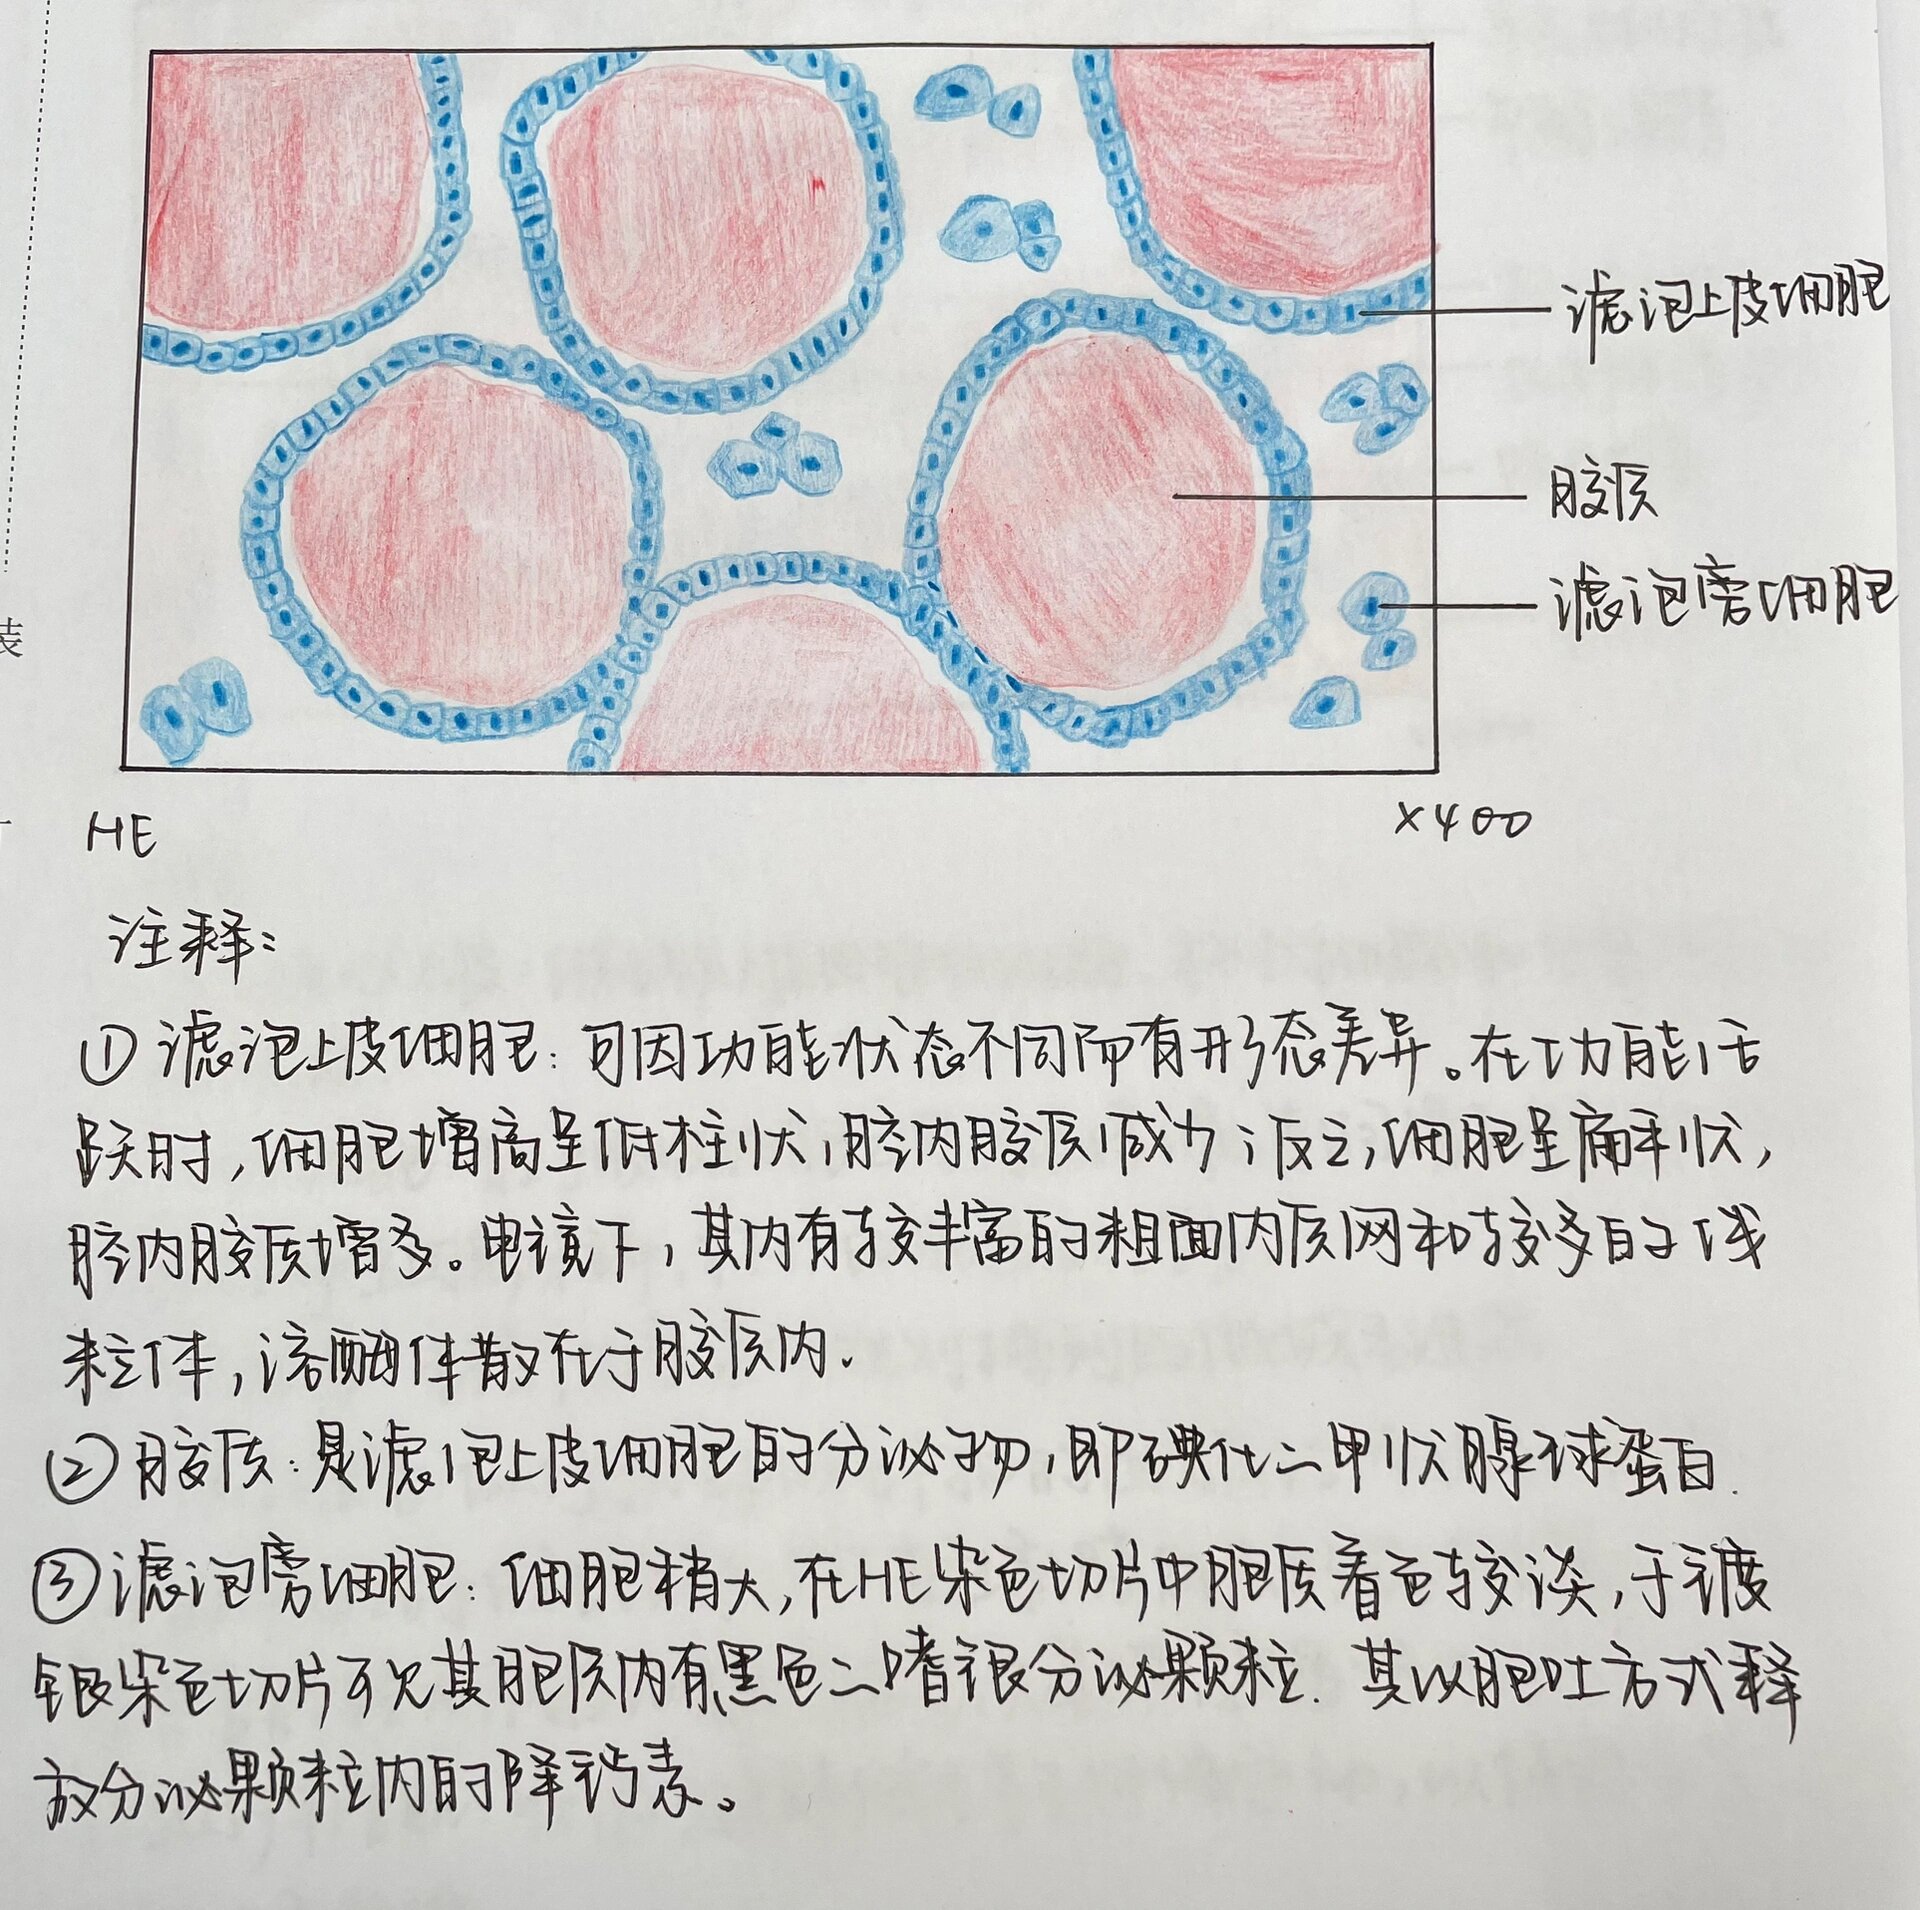 滤泡上皮细胞
胶质
滤泡旁细胞
装
HE
×400
注释：
①滤泡上皮细胞：可因功能状态不同而有形态差异。在功能活
跃时，细胞增高呈低柱状，腔内胶质减少；反之，细胞呈扁平状，
腔内胶质增多。电镜下，其内有较丰富的粗面内质网和较多的线
粒体，溶酶体散在于胶质内.
②胶质：是滤泡上皮细胞的分泌物，即碘化二甲状腺球蛋白.
③滤泡旁细胞：细胞稍大，在HE染色切片中胞质着色较淡，于镀
银染色切片可见其胞质内有黑色二嗜银分泌颗粒. 其以胞吐方式释
放分泌颗粒内的降钙素。